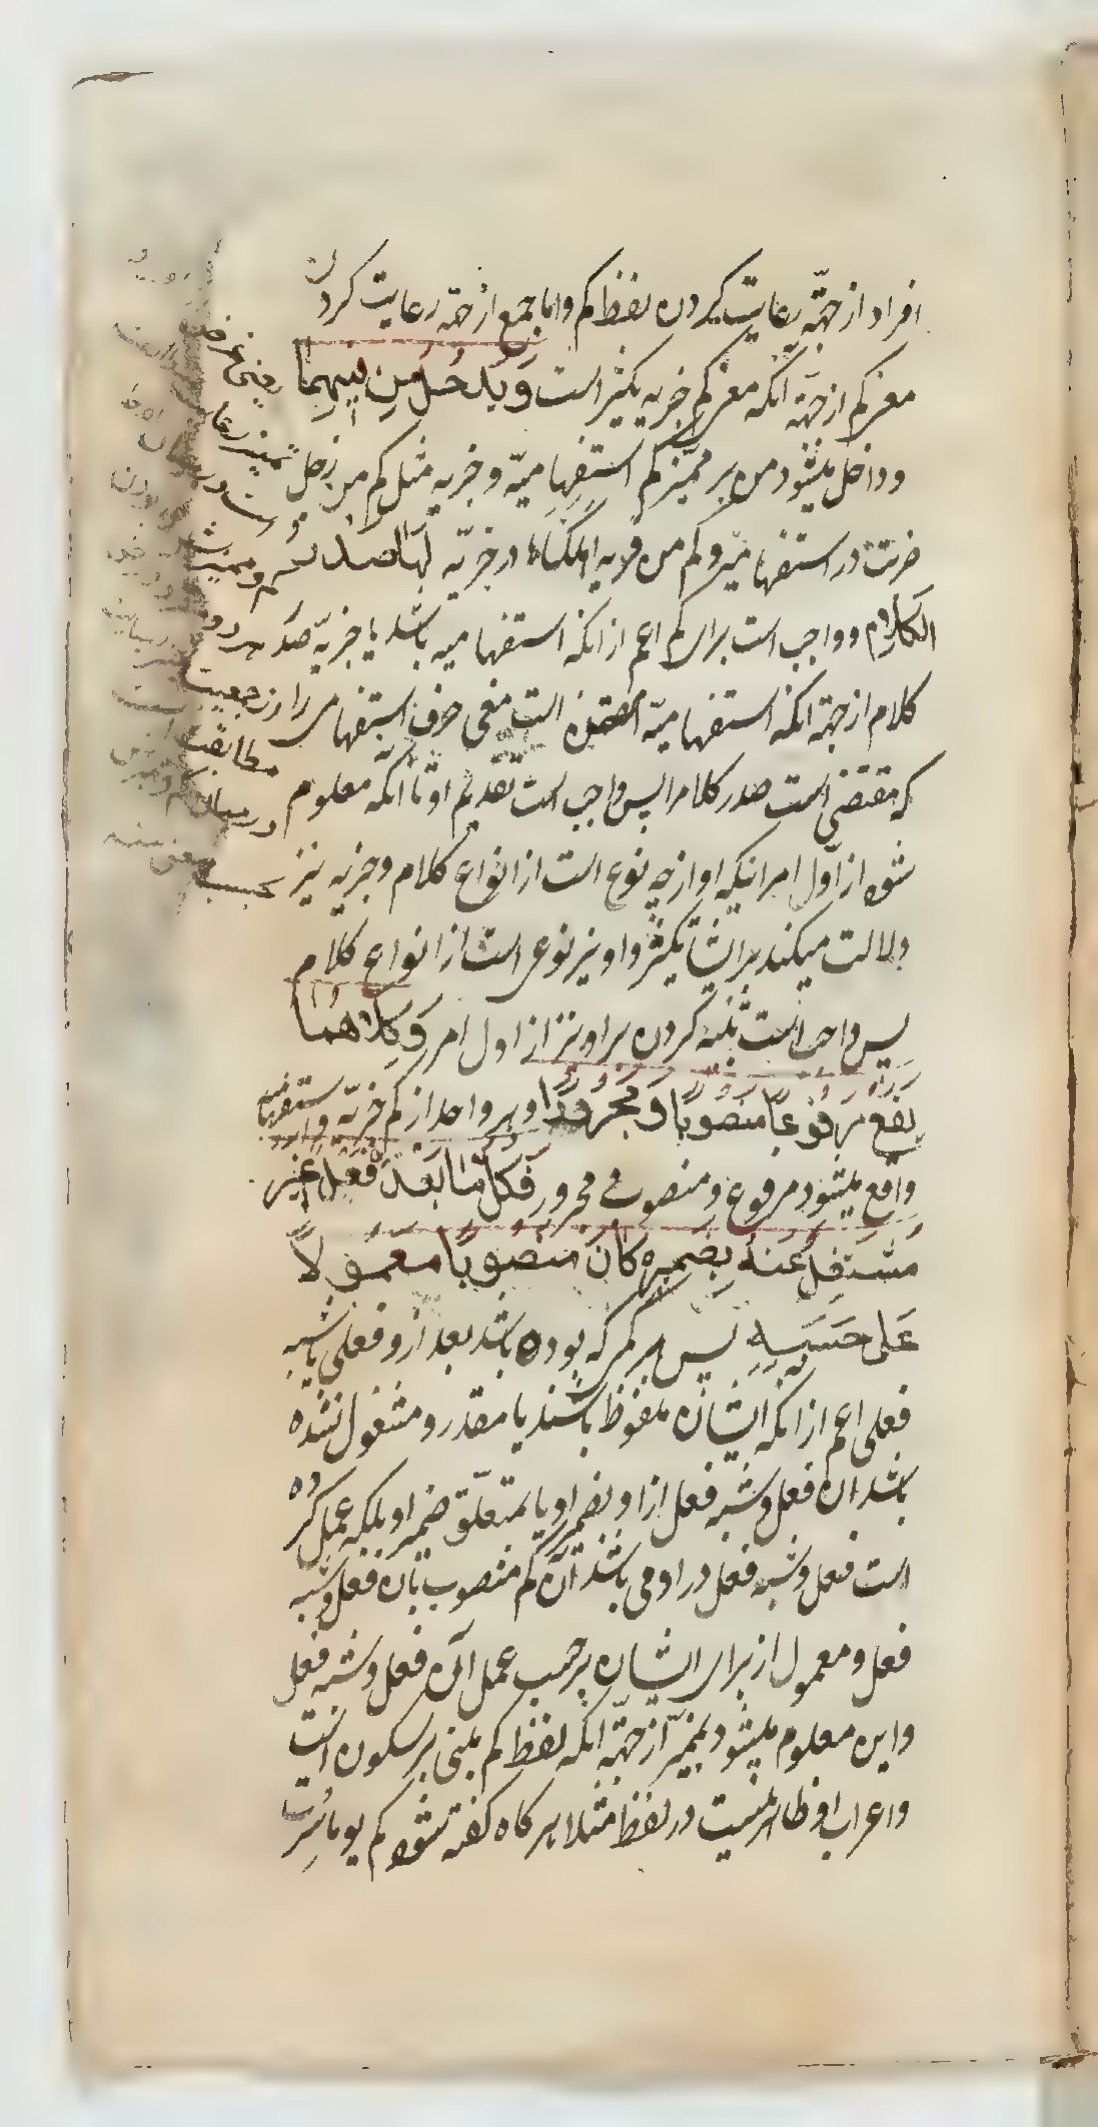 افراد از جهتّه رعایت کردن لفظ کم واما جمع از جهّة رعایت کردن
معنی کم از جهّة انکه معنی کم خبریه تکثیر است وَیَدخُلُ مِن فیهِما
و داخل میشود من بر ممیّز کم استفهامیّه و خبریه مثل کم من رجل
ضربت در استفهامیّه و کم من قریه اهلکناها در خبریّه لَها صدرُ
الکَلام و واجب است برای کم اعم از انکه استفهامیه باشد یا خبریّه صدر
کلام از جهّة انکه استفهامیّه متضمّن است معنی حرف استفهامی را
که مقتضی است صدر کلام را پس واجب است تقدیم او تا انکه معلوم
شود از اوّل امر اینکه او از چه نوع است از انواع کلام و خبریه نیز
دلالت میکند بر انشا تکثیر و او نیز نوعی است از انواع کلام
پس واجب است تنبیه کردن بر او نیز از اول امر وَکِلاهُما
یَقَعُ مَرفُوعاً مَنصُوباً وَ مَجرُوراً و هر واحد از کم خبریّه و استفهامیه
واقع میشود مرفوع و منصوب و مجرور فَکُلّ ما بَعدَهُ فِعلٌ غیرُ
مُشتَغِلٍ عَنهُ بِضَمیرِه کانَ مَنصوباً مَعمُولاً
عَلی حَسَبِهِ پس هر کم که بوده باشد بعد از و فعلی یا شبه
فعلی اعم از انکه ایشان ملفوظ باشند یا مقدر و مشغول نشده
باشد ان فعل و شبه فعل از او بضمیر او یا بمتعلّق ضمیر او بلکه عمل کرده
است فعل و شبه فعل در او می باشد آن کم منصوب بآن فعل و شبه
فعل و معمول از برای ایشان بر حسب عمل آن فعل و شبه فعل
واین معلوم میشود بممیّز از جهّة انکه لفظ کم مبنی بر سکون است
واعراب او ظاهر نیست در لفظ مثلا هر کاه کفته شود کم یوما سِرتَ
یعنی غرض
ممیز
مطابقت